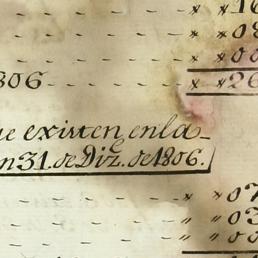 16
08
00
806 26
ue existen enla
n 31. de Diz.e de 1806.
07
03
00